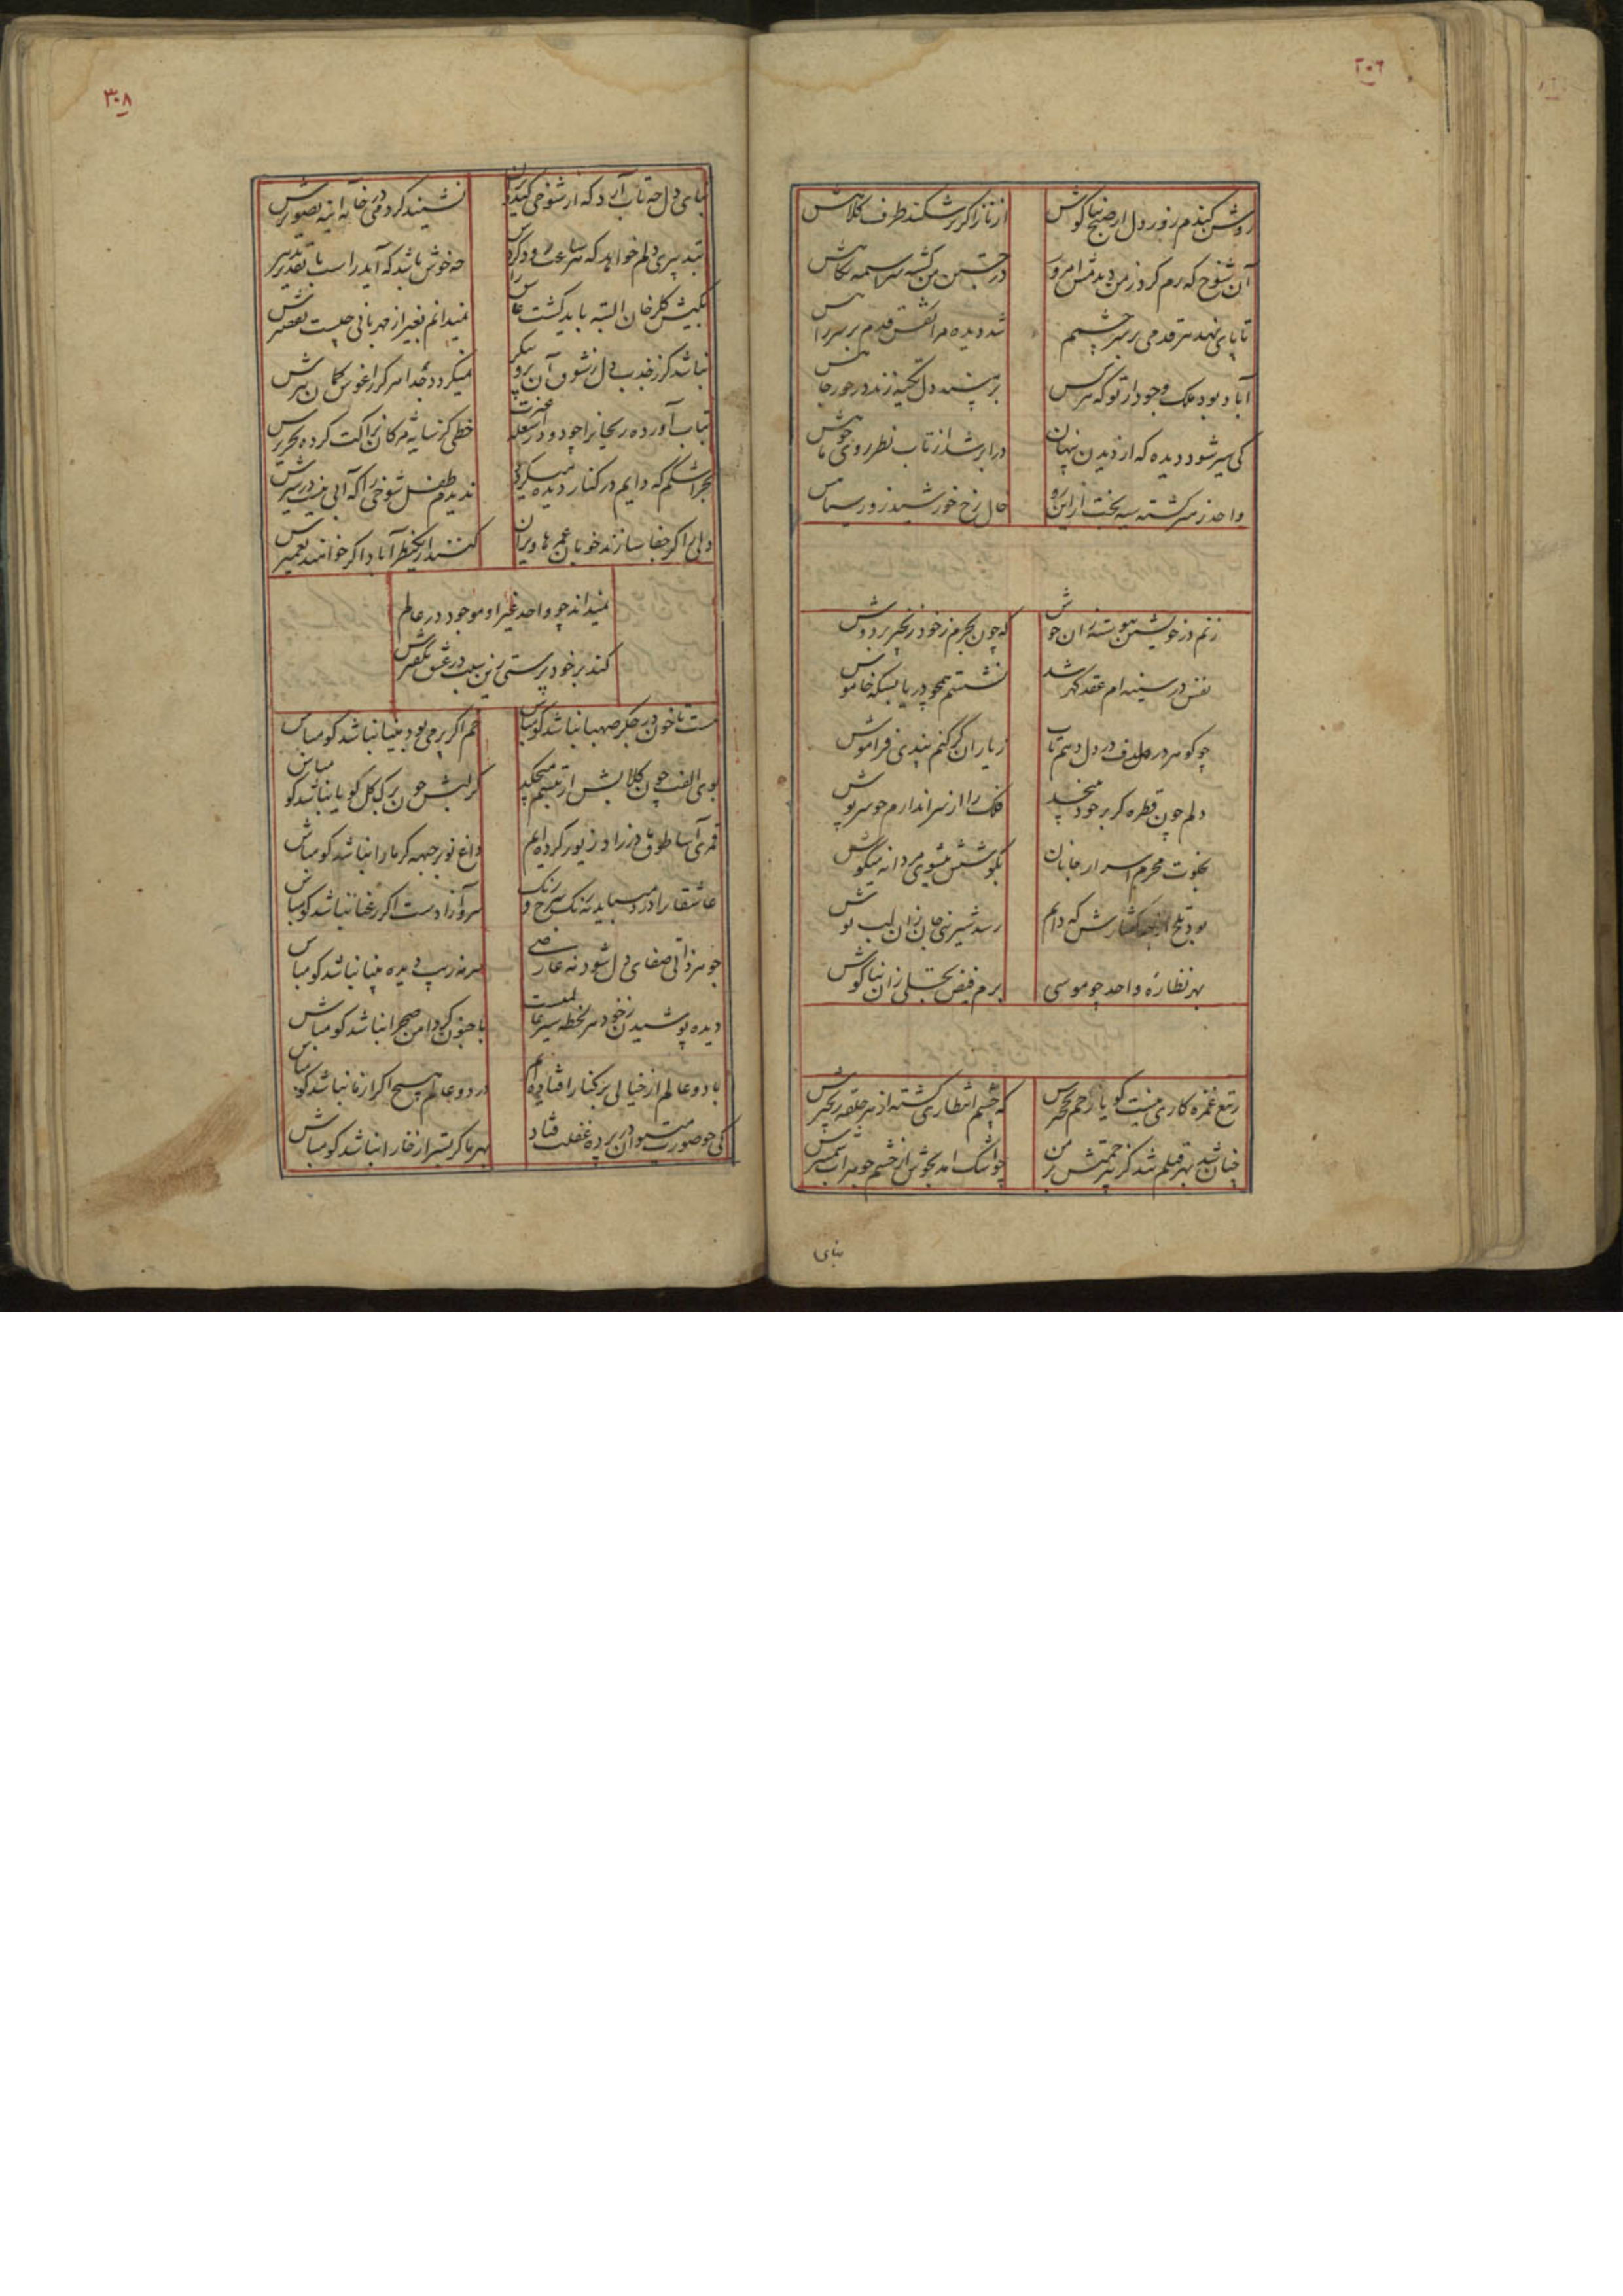 ۳۰۶
روشن کندم روز دل از صبح بناکوش
از ناز اکر برشکند طرف کلاهش
آن شوخ که رم کرد ز من دیدمش امروز
در جستن من کشته سراسیمه نکاهش
تا پای نهد هر قدمی بر سر چشمم
شد دیده مرا نقش قدم بر سر راهش
آباد بود ملک وجود از تو که هرکس
بر پشته دل تکیه زند در
کی سیر شود دیده که از دیدن پنهان
در ابر شد از تاب نظر روی
واحد ز سرکشته سیه بخت از این رو
خال رخ خورشید ز
زنم در خویشتن پیوسته زان جوش
که چون بحرم ز خود زنجیر بر دوش
نفس در سینه ام عقد کهر شد
نشستم همچو دریا بسکه خاموش
چو کوهر در صدف در دل دهم تاب
ز یاران کر کنم پندی فراموش
دلم چون قطره کر بر خود بپیچد
فلک را از سر اندازم چو سرپوش
بخلوت محرم اسرار جانان
بکوشش میشوی مردانه میکوش
بود تلخ که دایم
رسد شیرینی جان زان لب نوش
بهر نظاره واحد چو موسی
برم فیض تجلی زان بناکوش
ز تیغ غمزه کاری نیست کویا زخم نخچیرش
که چشم انتظاری کشته از هر حلقه زنجیرش
چنان شد بهر قتلم تند کز بیرحمتش بر من
چو اشک آمد بجوش از چشم جوهر آب شمشیرش
بنای
۳۰۸
بنای دل چه تاب آرد که از شوخی
نشیند کرد می در خانه آئینه تصویرش
تدبیری دلم خواهد که هر ساعت دود کردش
چه خوش باشد که آید راست با تقدیر تدبیرش
بکیش کلرخان البته باید کشت عاشق را
نمیدانم بغیر از مهربانی چیست تقصیرش
نباشد کر ز جذب دل ز شوق آن پیکر
نمیکردد جدا هرکز ز اغوش کمان تیرش
بتاب آورده ریحانرا چو دود از شعله غیرت
خطی کز سایه مژکان نزاکت کرده تحریرش
بجز اشکم که دایم در کنار دیده میکردد
ندیدم طفل شوخی را که آبی نیست در شیرش
دلی را کر جفا سازند خوبان عمرها ویران
کنند از یک نظر آباد اکر خواهند تعمیرش
نمیداند چو واحد غیر او موجود در عالم
کند بر خود پرستی زین سبب در عشق تکفیرش
هست تا خون در جکر صهبا نباشد کو مباش
خم اکر پر می بود مینا نباشد کو مباش
بوی الفت چون کلابش از تبسم میچکد
کر لبش چون برک کل کویا نباشد کو مباش
قمری آسا طوق در زیور کرده ایم
داغ نو بر جبهه کر ما را نباشد کو مباش
عاشقانرا درد میباید نه رنک سرخ و زرد
سرو آزادست اکر رعنا نباشد کو مباش
جوهر ذاتی صفای دل شود نه عارضی
سرمه زیب دیده بینا نباشد کو مباش
دیده پوشیدن ز خود هر لحظه سیر عالمست
با جنون کر دامن صحرا نباشد کو مباش
با دو عالم از خیالی بر کنار افتاده ایم
در دو عالم هیچ اکر از ما نباشد کو مباش
کی چو صورت میتوان در پرده غفلت فتاد
بهر ما کر بستر از خارا نباشد کو مباش